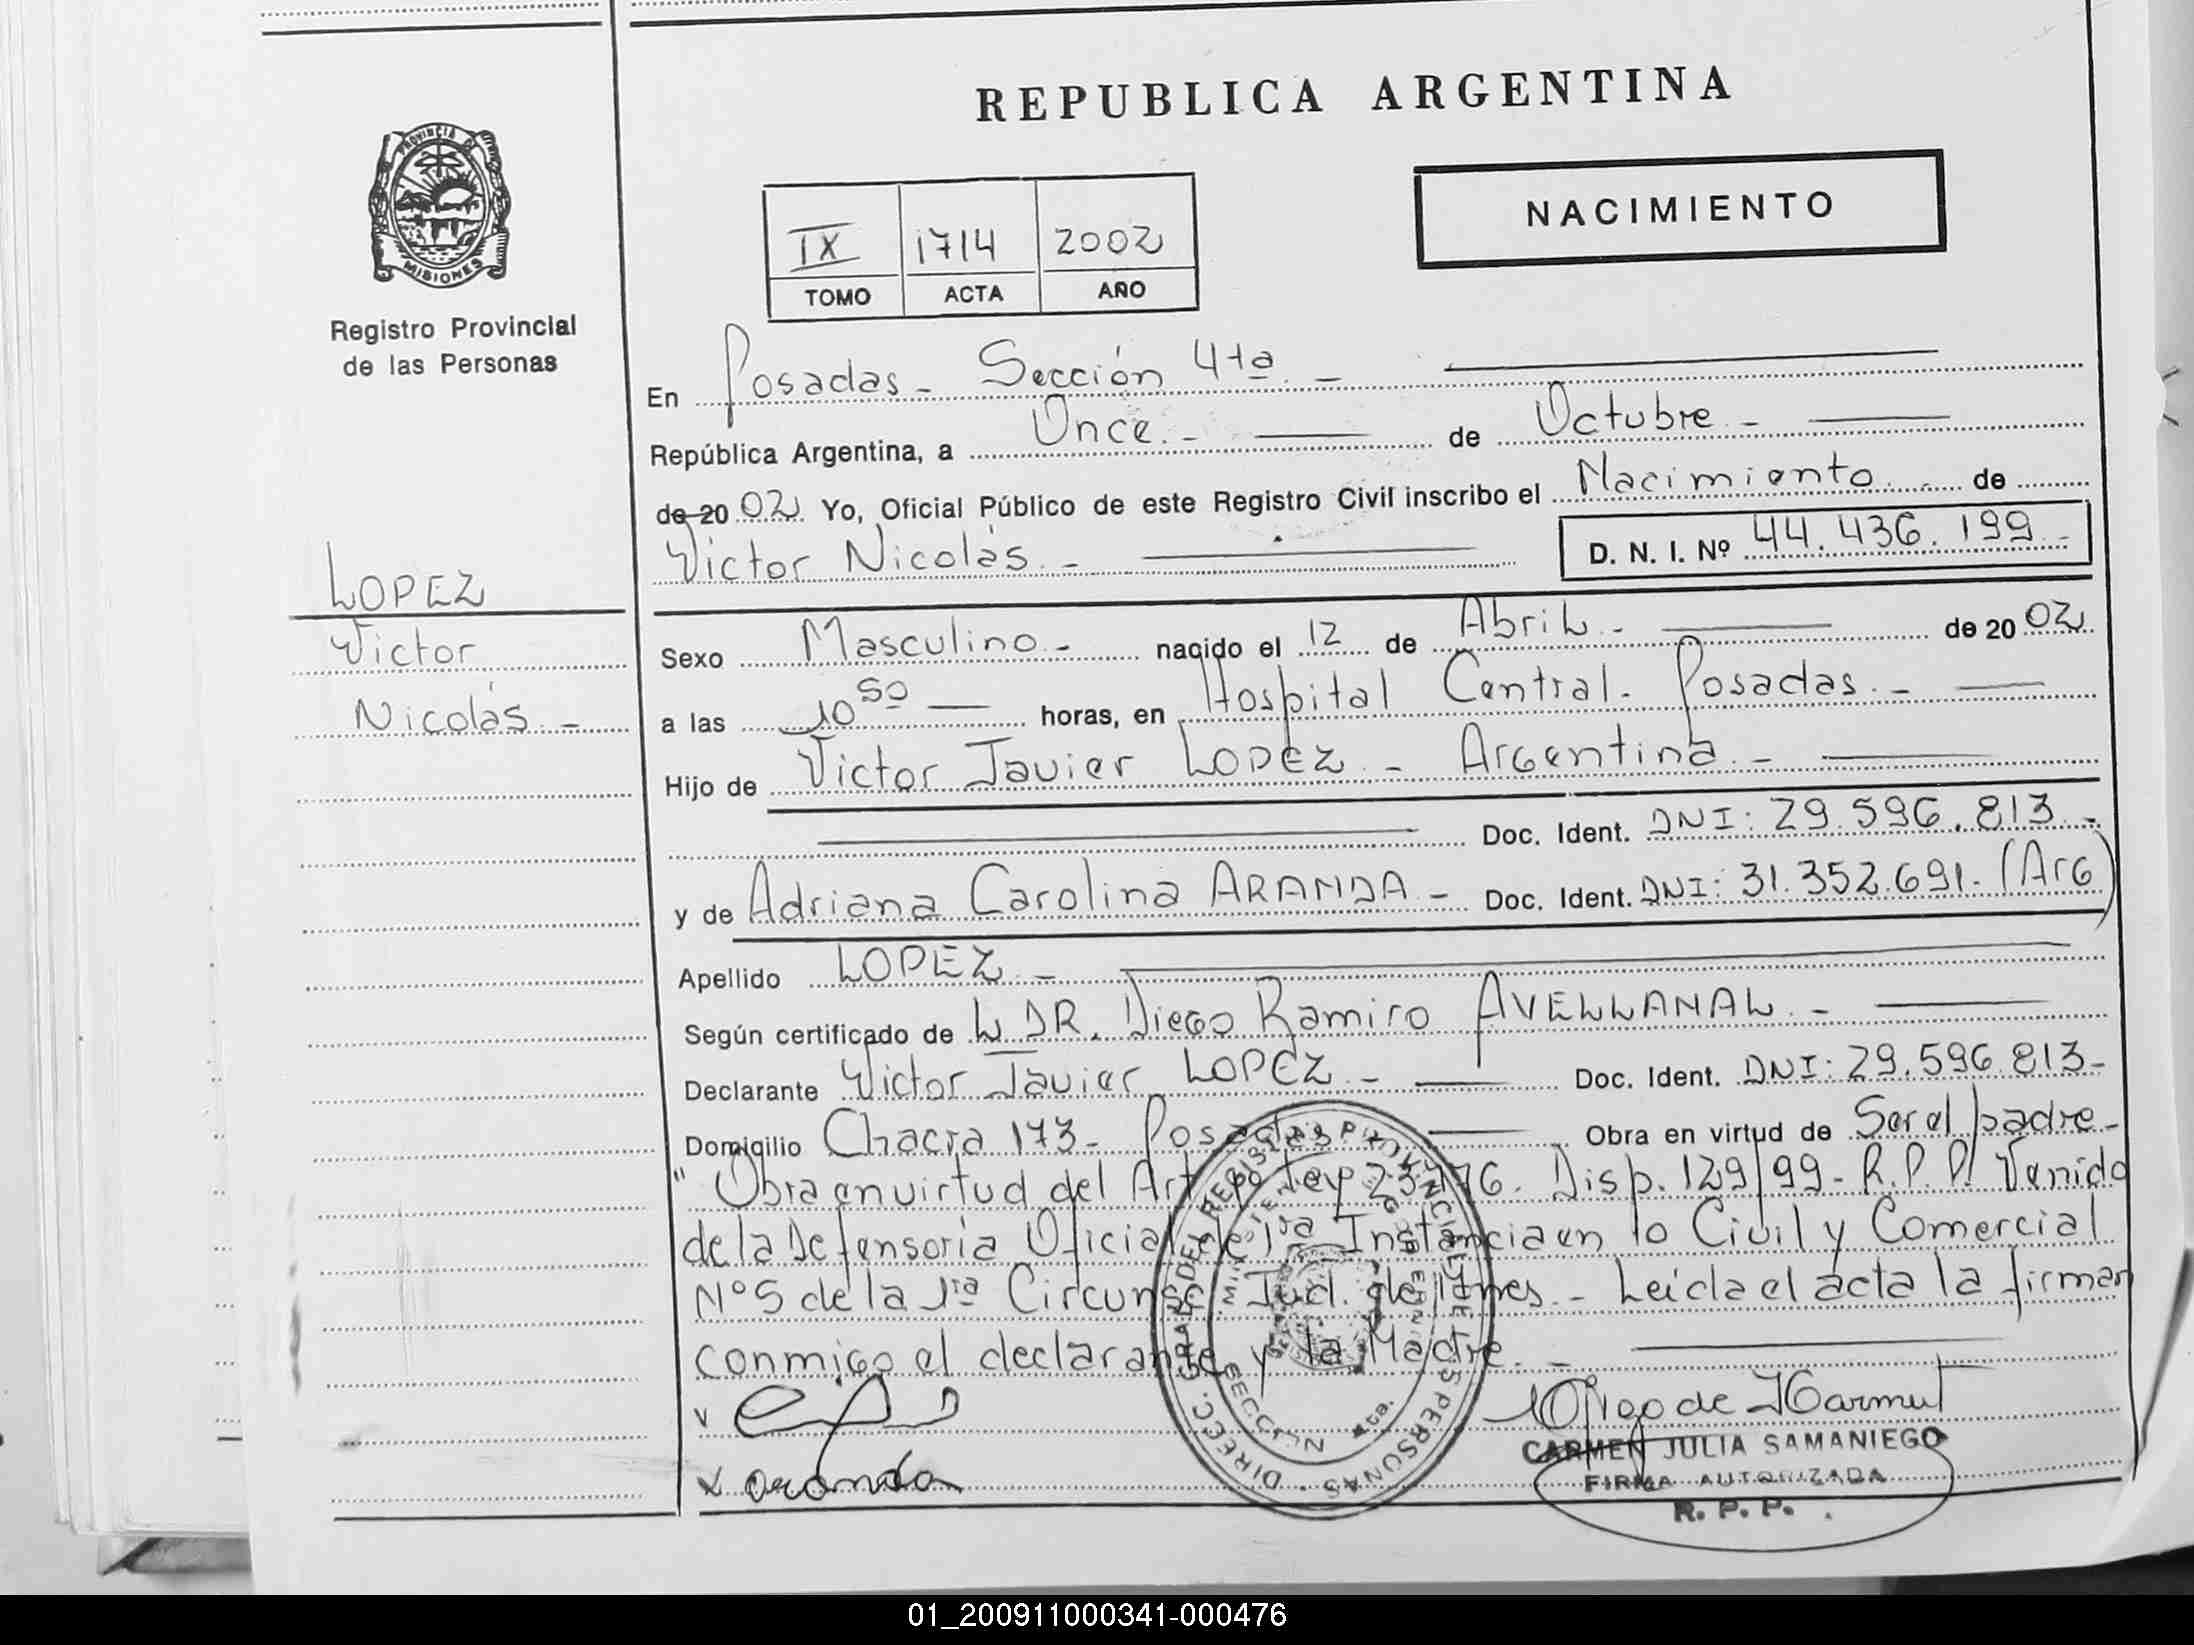 REPUBLICA ARGENTINA
PROVINCIA DE
MISIONES
Registro Provincial
de las Personas
NACIMIENTO
IX 1714 2002
TOMO ACTA AÑO
En Posadas - Sección 4ta. -
República Argentina, a Once. - de Octubre -
de 20 02 Yo, Oficial Público de este Registro Civil inscribo el Nacimiento de
Victor Nicolás. - D. N. I. Nº 44.436.199 -
LOPEZ
Victor
Nicolás. -
Sexo Masculino - nacido el 12 de Abril - de 20 02
a las 10 50 horas, en Hospital Central. Posadas. -
Hijo de Victor Javier LOPEZ - Argentina. -
Doc. Ident. DNI: 29.596.813 -
y de Adriana Carolina ARANDA - Doc. Ident. DNI: 31.352.691. (Arg)
Apellido LOPEZ -
Según certificado de L DR. Diego Ramiro AVELLANAL. -
Declarante Victor Javier LOPEZ - Doc. Ident. DNI: 29.596.813 -
Domicilio Chacra 173 - Posadas Obra en virtud de Ser el padre -
"Obra en virtud del Art Ley Disp. 129/99 - R.P.P. Venido
de la Defensoría Oficial de 1ra Instancia en lo Civil y Comercial
Nº 5 de la 1ra Circunsc. Jud. de Mnes. - Leída el acta la firman
conmigo el declarante y la Madre. -
Aranda
DIRECC. GRAL. DEL REGISTRO PROVINCIAL DE LAS PERSONAS
SECCION 4ta.
CARMEN JULIA SAMANIEGO
FIRMA AUTORIZADA
R. P. P.
01_200911000341-000476